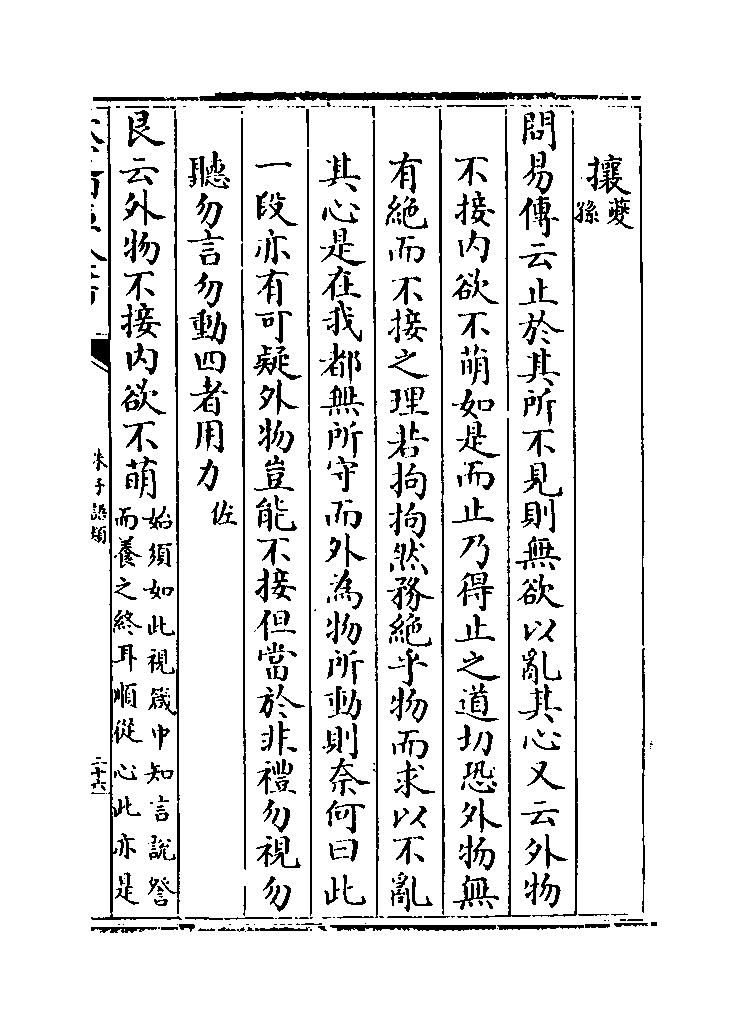 攘夔孫
問易傳云止於其所不見則無欲以亂其心又云外物
不接内欲不萌如是而止乃得止之道切恐外物無
有絶而不接之理若拘拘然務絶乎物而求以不亂
其心是在我都無所守而外為物所動則奈何曰此
一段亦有可疑外物豈能不接但當於非禮勿視勿
聽勿言勿動四者用力佐
艮云外物不接内欲不萌
始須如此視箴中知言說
而養之終耳順從心此亦是
朱子語類
二十六